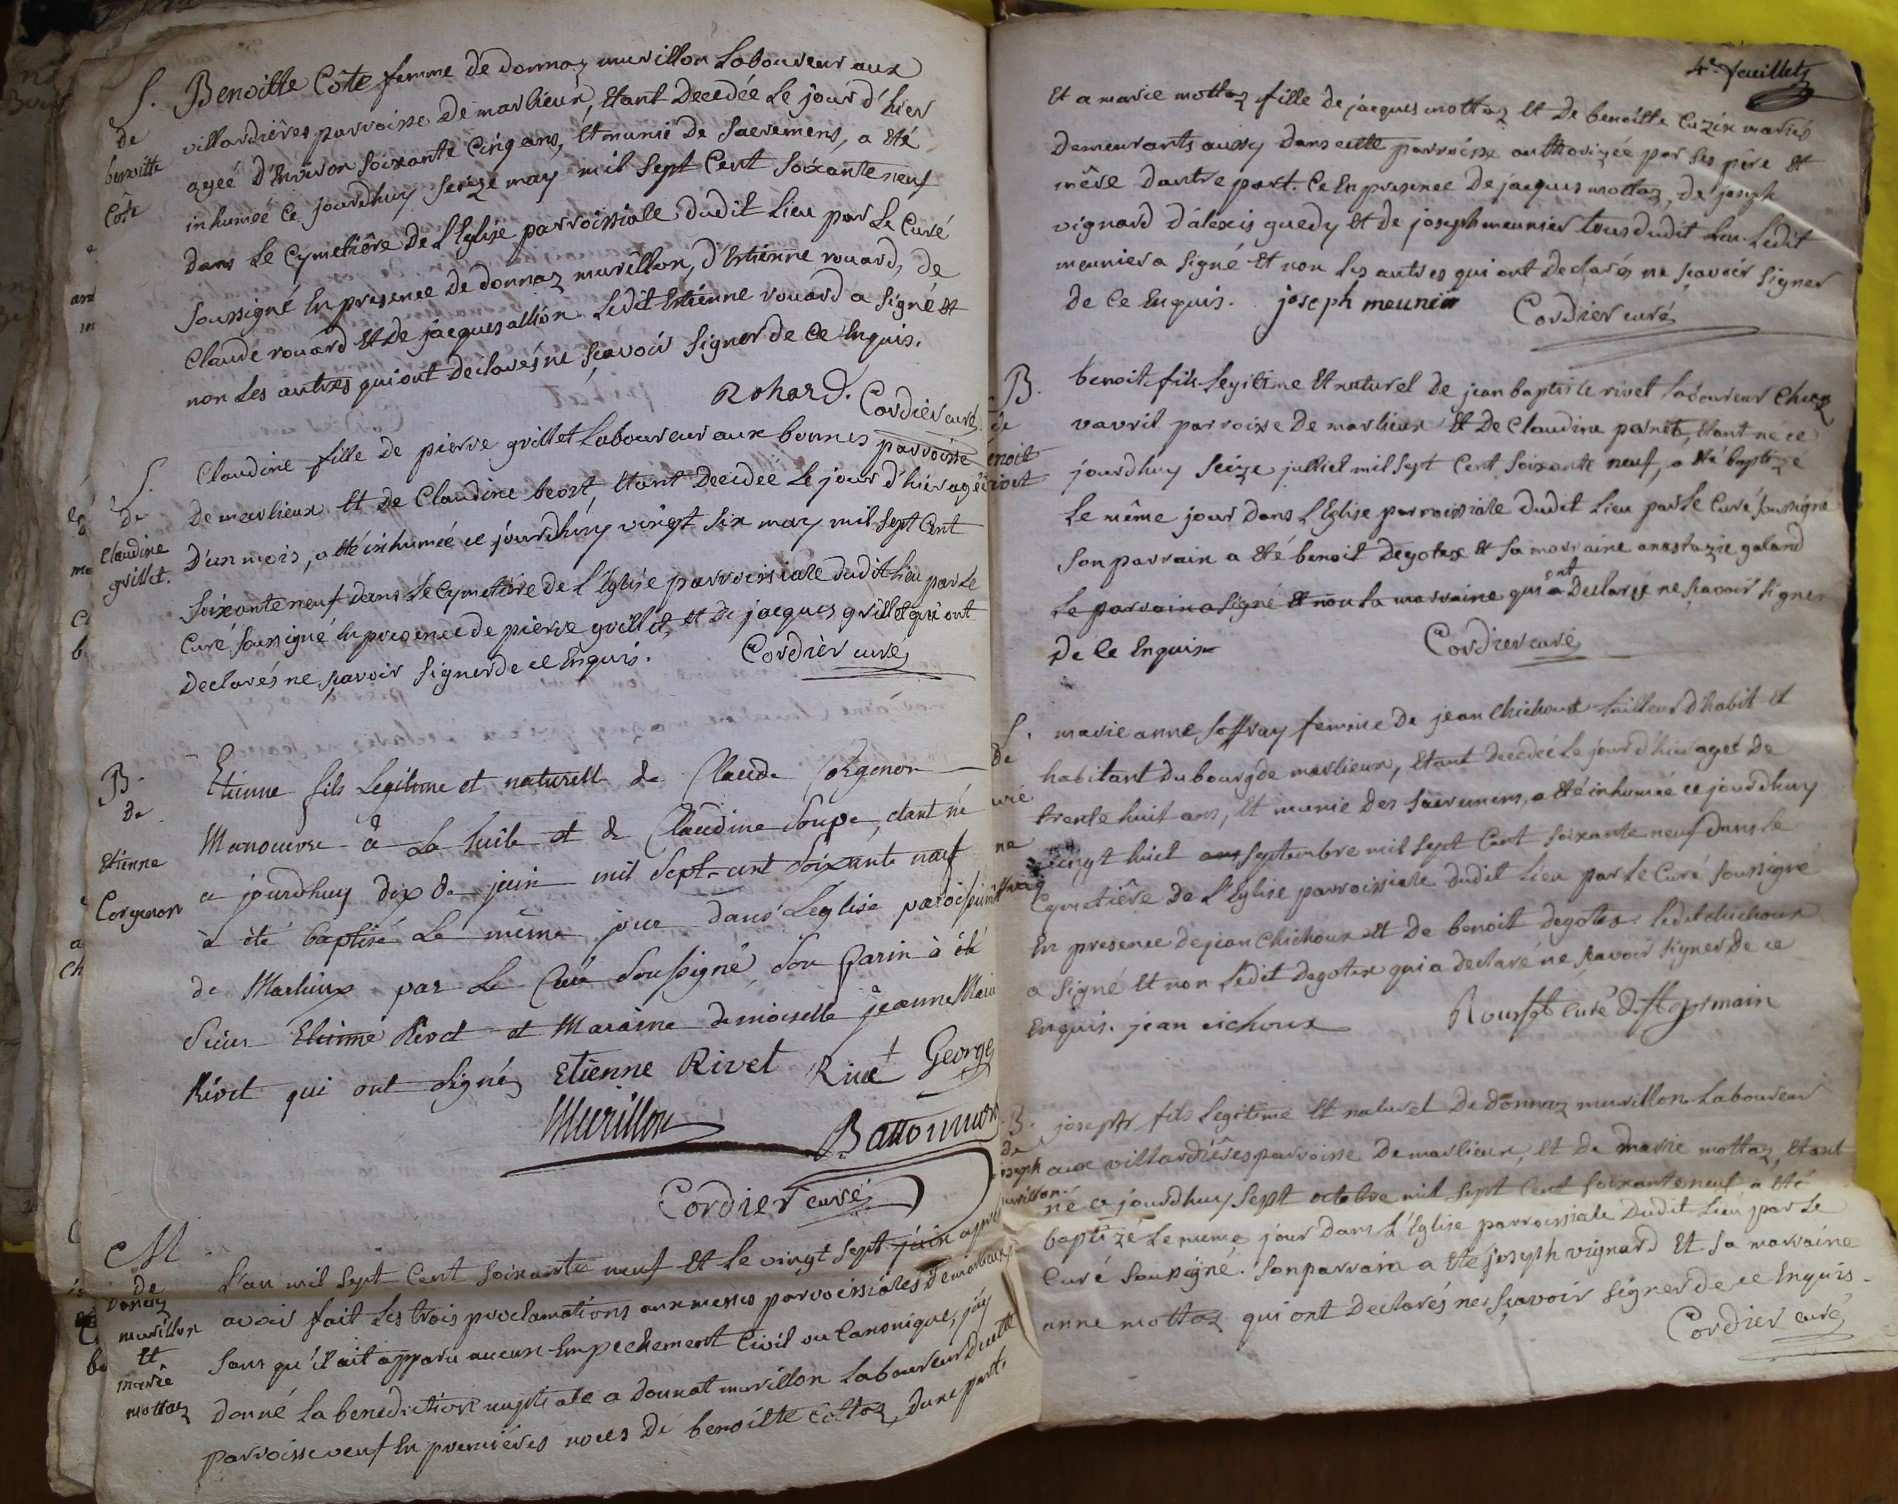 S. de benoitte Côte
Benoitte Côte femme de donnaz murillon Laboureur aux
villardières parroisse de marlieux, Etant Decedée le jour d'hier
agéé d'Environ soixante cinq ans, Et munie de sacremens, a été
inhumée ce jourdhuy seize may mil sept cent soixante neuf
dans le Cymetière de l'Eglise parroissiale dudit lieu par le Curé
soussigné En presence de donnaz murillon, d'Estienne rouard, de
Claude rouard Et de jacques allion. ledit Estienne rouard a signé Et
non les autres qui ont declarés ne sçavoir signer de ce Enquis.
Rohard. Cordier curé
S. de Claudine grillet.
Claudine fille de pierre grillet Laboureur aux bonnes parroisse
de marlieux Et de Claudine beost, Etant Decedée le jour d'hier agée
D'un mois, a été inhumée ce jourdhuy vingt six may mil sept Cent
soixante neuf dans le Cymetière de l'Eglise parroissiale dudit lieu par le
Curé soussigné En presence de pierre grillet, et de jacques grillet qui ont
Declarés ne sçavoir signer de ce Enquis. Cordier curé
B. de Etienne Corgenon
Etienne fils legitime et naturell de Claude Corgenon
Manouvre à la tuile et de Claudine soupe, etant né
ce jourdhuy dix de juin mil sept-cent soixante neuf
à été baptisé le même jour dans l'eglise paroissial
de Marlieux par le Curé soussigné, son Parin à été
sieur Etienne Rivet et Maraine demoiselle jeanne Marie
Rivet qui ont signés Etienne Rivet Rivet George
Murillon
Cordier curé
M. de Donaz murillon Et marie mottaz
L'an mil sept Cent soixante neuf Et le vingt sept juin après
avoir fait les trois proclamations aux messes parroissiales de marlieux
sans qu'il ait apparu aucun Empechement Civil ou Canonique, j'ay
donné la benediction nuptiale a donnat murillon laboureur dudit
parroisse veuf En premières noces de benoitte Cottaz, d'une part.
4e. feuillet
Et a marie mottaz fille de jacques mottaz Et de benoitte Cuzin mariés
demeurants aussy dans cette parroisse authorizée par ses père Et
mère d'autre part. Ce En presence de jacques mottaz, de joseph
vignard d'alexis guedy Et de joseph meunier tous dudit lieu. Ledit
meunier a signé Et non les autres qui ont declarés ne sçavoir signer
de ce Enquis. joseph meunier Cordier curé
B.
benoit fils legitime Et naturel de jean baptiste rivet laboureur Chez
vavril parroisse de marlieux Et de Claudine pernet, Etant né ce
jourdhuy seize juilliet mil sept Cent soixante neuf, a été baptizé
le même jour dans l'Eglise parroissiale dudit lieu par le Curé soussigné
son parrain a été benoit degotex Et sa marraine anastazie galand
le parrain a signé Et non la marraine qui ont a Declarés ne sçavoir signer
de ce Enquis Cordier curé
S. de
marie anne joffray femme de jean Chichoux tailleur d'habit Et
habitant du bourg de marlieux, Etant decedée le jour d'hier agée de
trente huit ans, Et munie des sacremens, a été inhumée ce jourdhuy
vingt huit septembre mil sept Cent soixante neuf dans le
Cymetière de l'Eglise parroissiale dudit lieu par le Curé soussigné
En presence de jean Chichoux et de benoit degotex. ledit chichoux
a signé Et non ledit degotex qui a declaré ne sçavoir signer de ce
Enquis. jean chichoux Rousset curé de St germain
B. de joseph murillon.
joseph fils legitime Et naturel de donnaz murillon Laboureur
aux villardières parroisse de marlieux, Et de marie mottaz, Etant
né ce jourdhuy sept octobre mil sept cent soixante neuf a été
baptizé le meme jour dans l'Eglise parroissiale dudit lieu par le
Curé soussigné. son parrain a été joseph vignard Et sa marraine
anne mottaz qui ont declarés ne sçavoir signer de ce Enquis.
Cordier curé